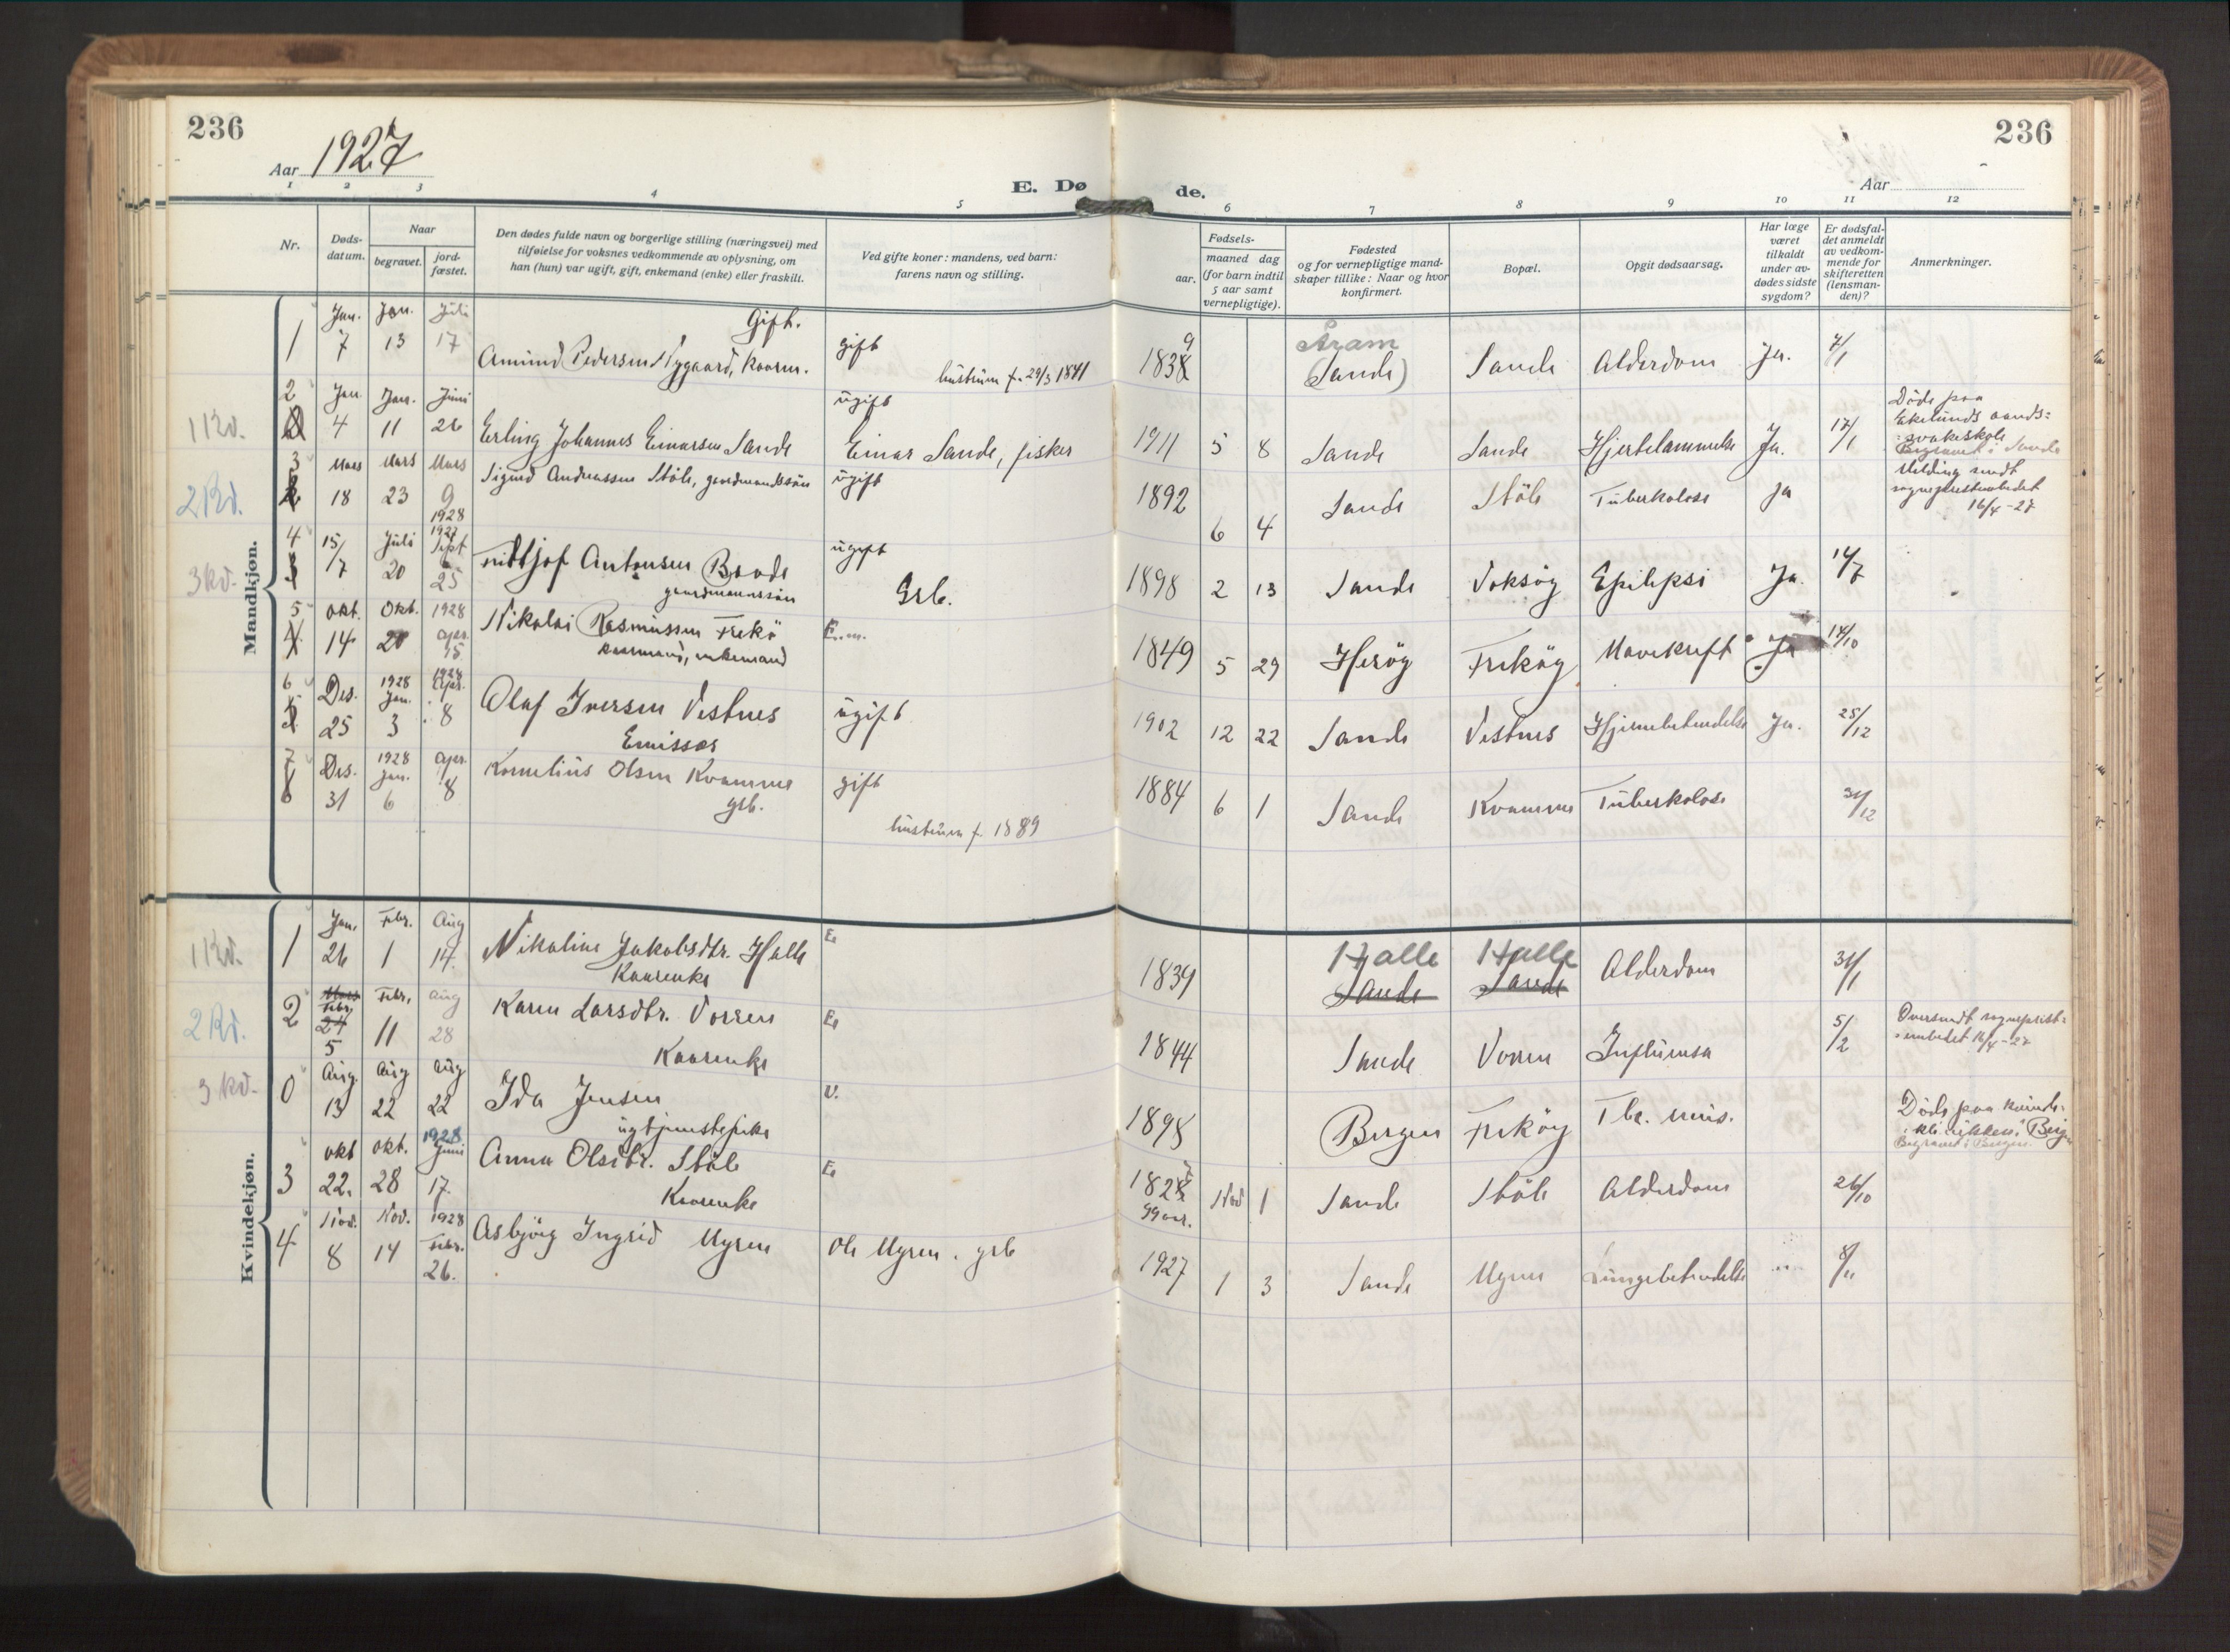 236
236
Aar 1927
E. Døde.
Aar
1 2 3 4 5 6 7 8 9 10 11 12
Nr.
Døds-
datum.
Naar
begravet.
jord-
fæstet.
Den dødes fulde navn og borgerlige stilling (næringsvei) med
tilføielse for voksnes vedkommende av oplysning, om
han (hun) var ugift, gift, enkemand (enke) eller fraskilt.
Ved gifte koner: mandens, ved barn:
farens navn og stilling.
Fødsels-
aar.
maaned dag
(for barn indtil
5 aar samt
vernepligtige).
Fødested
og for vernepligtige mand-
skaper tillike: Naar og hvor
konfirmert.
Bopæl.
Opgit dødsaarsag.
Har læge
været
tilkaldt
under av-
dødes sidste
sygdom?
Er dødsfal-
det anmeldt
av vedkom-
mende for
skifteretten
(lensman-
den)?
Anmerkninger.
Mandkjøn.
1 Jan. 7 Jan. 13 Juli 17 Gift.
Amund Pedersen Nygaard, kaarm. gift
hustrun f. 29/3 1841
1839 Åram
(Sande) Sande Alderdom Ja. 7/1
1 Kv.
2 Jan. 4 Jan. 11 Juni 26 Erling Johannes Einarsen Sande ugift
Einar Sande, fisker 1911 5 8 Sande Sande Hjertelammelse Ja. 17/1
Døde paa
Ekelunds aands=
=svakeskole
Begravet i Sande
2 Kv.
3 Mars 18 Mars 23 Mars 9 1928 Sigurd Andreassen Støle, gaardmandssøn ugift
1892 6 4 Sande Støle Tuberkolose Ja
Melding sendt
sogneprestembedet
16/4-27
3 kv.
4 15/7 Juli 20 1927 Sept. 25 Fridtjof Antonsen Brode
gaardmannssøn
ugift
Grb.
1898 2 13 Sande Voksøy Epilepsi Ja. 14/7
5 okt. 14 Okt. 20 1928 apr. 15 Nikolai Rasmussen Frekø
kaarmand, enkemand
E.m.
1849 5 29 Herøy Frekøy Mavekreft Ja 14/10
6 Des. 25 1928 Jan. 3 1928 Apr. 8 Olaf Iversen Vestnes
Emissær
ugift
1902 12 22 Sande Vestnes Hjernebetendelse Ja. 25/12
7 Des. 31 1928 Jan. 6 Apr. 8 Kornelius Olsen Kvamme
grb.
gift
hustrun f. 1889
1884 6 1 Sande Kvamme Tuberkolose 31/12
Kvindekjøn.
1 Kv.
1 Jan. 26 Febr. 1 Aug 14. Nikoline Jakobsdtr. Halle
Kaarenke
E.
1839 Halle
Sande
Halle
Sande
Alderdom 31/1
2 Kv.
2 Mars
Febr.
24
5
Febr. 11 Aug 28 Karen Larsdtr. Vorren
Kaarenke
E.
1844 Sande Vorren Influensa 5/2
Oversendt sogneprest=
=embedet 16/4-27
3 kv.
0 Aug. 13 Aug 22 Aug 22 Ida Jensen
ug tjenestepike
U.
1898 Bergen Frekøy Tbc. mis.
Døde paa kvinde-
klinikken i Bergen
Begravet i Bergen.
3 okt 22. okt. 28 1928 Juni 17. Anna Olsdtr. Støle
Kaarenke
E.
99 aar. Nov 1 Sande Støle Alderdom 26/10
4 Nov. 8 Nov. 14 1928 Febr. 26. Asbjörg Ingrid Myren
Ole Myren. grb
1927 1 3 Sande Myren Lungebetendelse 8/11